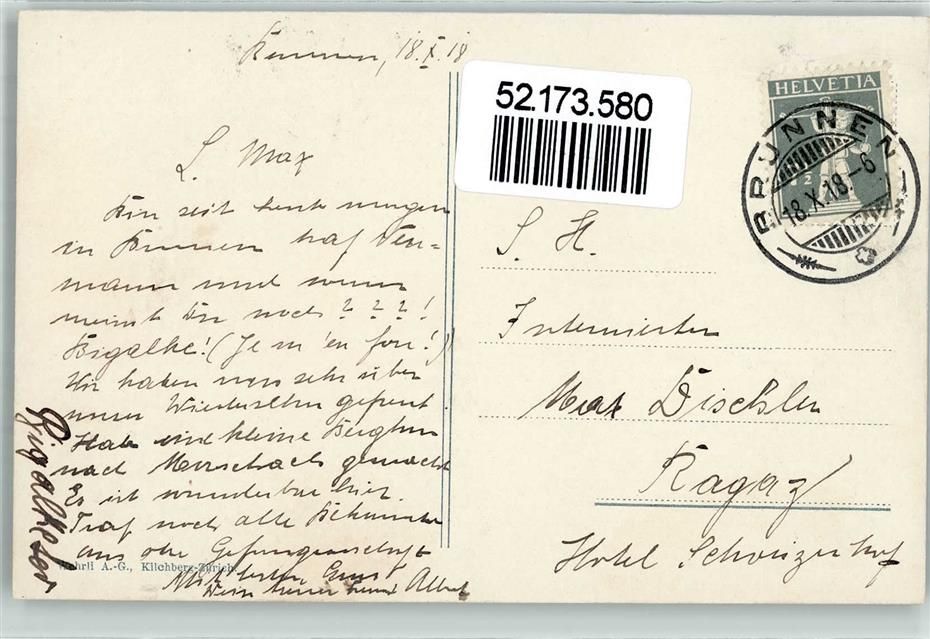 Brunnen, 18.X.18
L. Max
Bin seit heute morgen
in Brunnen traf Neu-
mann und wenn
meinst Du noch? ? ? !
Bigalke! (Je m'en fou!)
Wir haben uns sehr über
unser Wiedersehn gefreut
Habe eine kleine Bergtour
nach Morschach gemacht
Es ist wunderbar hier.
Traf noch alte Bekannte
aus der Gefangenschaft
Mit besten Gruss
Dein Albert
Bigalke
Wehrli A.-G., Kilchberg-Zürich.
52.173.580
HELVETIA
BRUNNEN
18.X.18.-6
S. H.
Internierten
Max Dischler
Ragaz
Hotel Schweizerhof